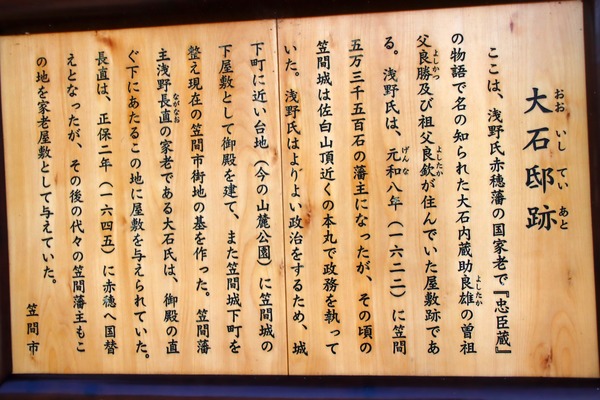 大石邸跡
おおいしていあと
ここは、浅野氏赤穂藩の国家老で『忠臣蔵』
の物語で名の知られた大石内蔵助良雄の曽祖
よしたか
父良勝及び祖父良欽が住んでいた屋敷跡であ
よしかつ
よしたか
る。浅野氏は、元和八年（一六二二）に笠間
げんな
五万三千五百石の藩主になったが、その頃の
笠間城は佐白山頂近くの本丸で政務を執って
いた。浅野氏はよりよい政治をするため、城
下町に近い台地（今の山麓公園）に笠間城の
下屋敷として御殿を建て、また笠間城下町を
整え現在の笠間市街地の基を作った。笠間藩
主浅野長直の家老である大石氏は、御殿の直
ながなお
ぐ下にあたるこの地に屋敷を与えられていた。
長直は、正保二年（一六四五）に赤穂へ国替
えとなったが、その後の代々の笠間藩主もこ
の地を家老屋敷として与えていた。
笠間市